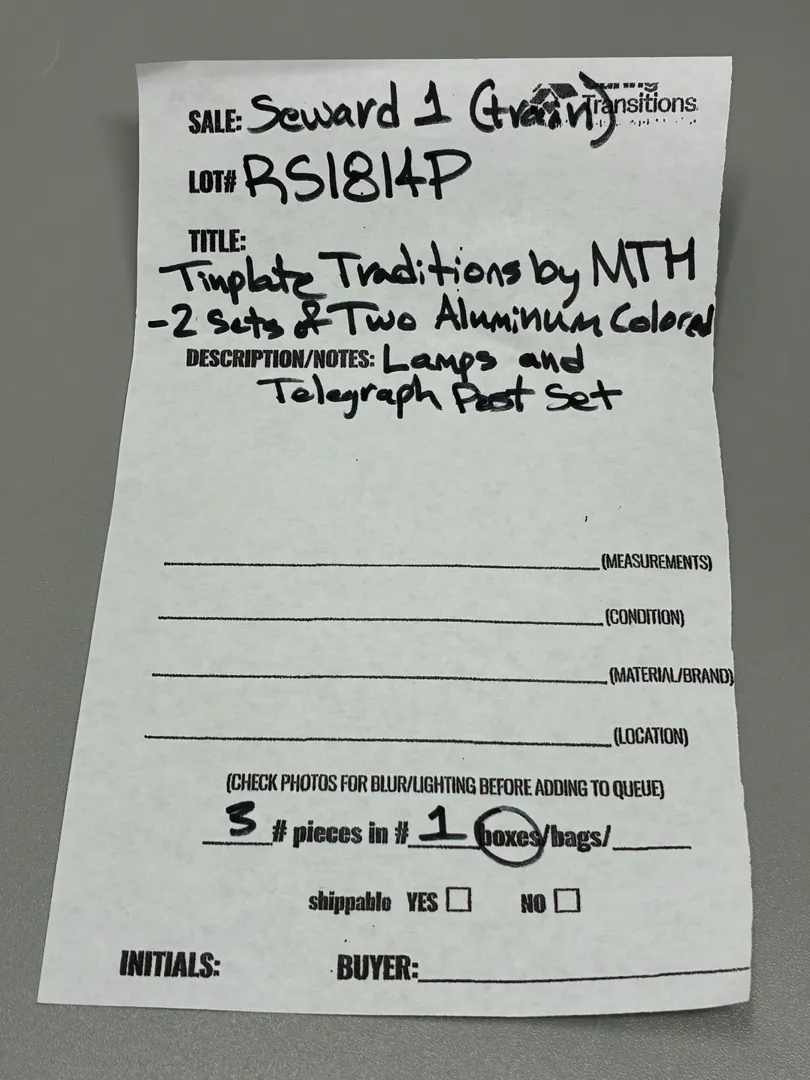 SALE: Seward 1 (train)
Transitions
LOT# RS1814P
TITLE:
Tinplate Traditions by MTH
-2 Sets of Two Aluminum Colored
DESCRIPTION/NOTES: Lamps and
Telegraph Post Set
(MEASUREMENTS)
(CONDITION)
(MATERIAL/BRAND)
(LOCATION)
(CHECK PHOTOS FOR BLUR/LIGHTING BEFORE ADDING TO QUEUE)
3 # pieces in # 1 boxes/bags/
shippable YES NO
INITIALS: BUYER: